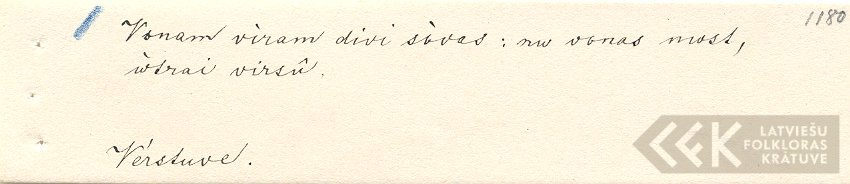 1180
Vonam vìram divi sòvas : nu vonas most,
ùtrai virsû.
Vérstuve.
LATVIEŠU
FOLKLORAS
KRĀTUVE